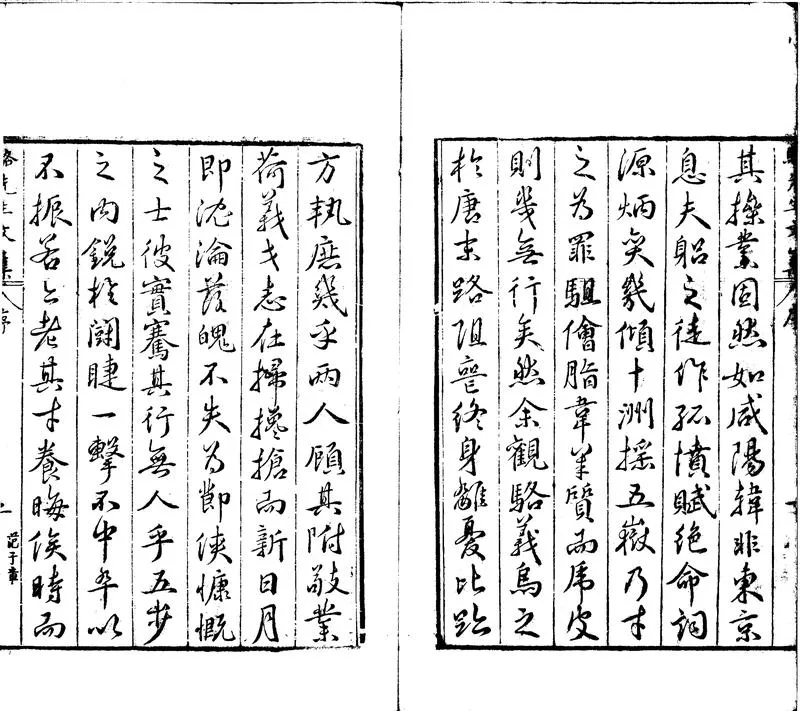 其操業固然如咸陽韓非東京
息夫躬之徒作孤憤賦絕命詞
源炳奕幾傾十洲搖五嶽乃才
之為罪駔儈脂韋羊質而虎皮
則幾無行矣然余觀駱義烏之
於唐末路阻躓終身離憂比跡
方執庶幾乎兩人顧其附敬業
荷義戈志在掃攙搶而新日月
即沈淪發魄不失為節俠慷慨
之士彼實騫其行無人乎五步
之內銳於鬬睫一擊不中卒以
不振若云老其才養晦俟時而
駱先生文集 序
范子章